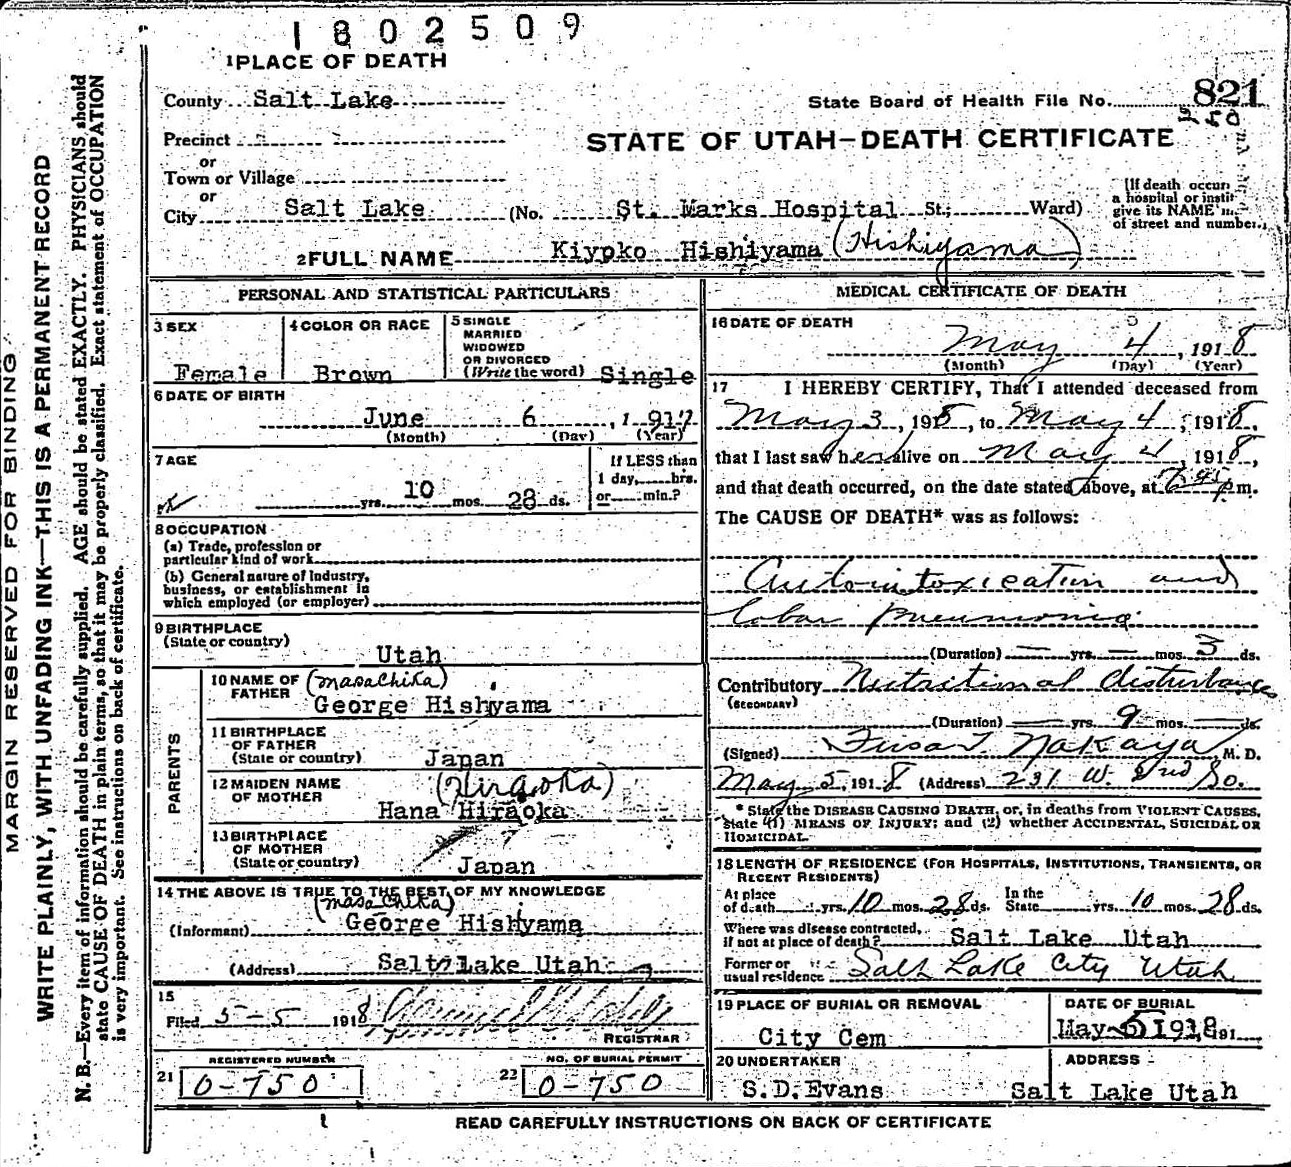 1802509
1 PLACE OF DEATH
County Salt Lake
State Board of Health File No. 821
Precinct
STATE OF UTAH—DEATH CERTIFICATE
or
Town or Village
or
City Salt Lake (No. St. Marks Hospital St.; Ward)
(If death occur
a hospital or instit
give its NAME
of street and number.
2 FULL NAME Kiypko Hishiyama (Hishiyama)
PERSONAL AND STATISTICAL PARTICULARS
3 SEX
Female
4 COLOR OR RACE
Brown
5 SINGLE
MARRIED
WIDOWED
OR DIVORCED
(Write the word) Single
6 DATE OF BIRTH
June 6, 1917
(Month) (Day) (Year)
7 AGE
yrs. 10 mos. 28 ds.
If LESS than
1 day, hrs.
or min.?
8 OCCUPATION
(a) Trade, profession or
particular kind of work
(b) General nature of Industry,
business, or establishment in
which employed (or employer)
9 BIRTHPLACE
(State or country)
Utah
PARENTS
10 NAME OF
FATHER
(masachika)
George Hishyama
11 BIRTHPLACE
OF FATHER
(State or country) Japan
12 MAIDEN NAME
OF MOTHER
(Hiraoka)
Hana Hiraoka
13 BIRTHPLACE
OF MOTHER
(State or country)
Japan
14 THE ABOVE IS TRUE TO THE BEST OF MY KNOWLEDGE
(masachika)
(Informant) George Hishyama
(Address) Salt Lake Utah
15
Filed 5-5 1918
REGISTRAR
REGISTERED NUMBER
21 0-750
NO. OF BURIAL PERMIT
22 0-750
MEDICAL CERTIFICATE OF DEATH
16 DATE OF DEATH
May 4, 1918
(Month) (Day) (Year)
17 I HEREBY CERTIFY, That I attended deceased from
May 3, 1918, to May 4, 1918,
that I last saw her alive on May 4, 1918,
and that death occurred, on the date stated above, at p.m.
The CAUSE OF DEATH* was as follows:
Autointoxication and
lobar pneumonia
(Duration) — yrs. — mos. 3 ds.
Contributory Nutritional disturbances
(SECONDARY)
(Duration) — yrs. 9 mos. — ds.
(Signed) Fusa T. Nakaya M. D.
May 5, 1918 (Address) 231 W. 2nd So.
* State the DISEASE CAUSING DEATH, or, in deaths from VIOLENT CAUSES,
state (1) MEANS OF INJURY; and (2) whether ACCIDENTAL, SUICIDAL OR
HOMICIDAL.
18 LENGTH OF RESIDENCE (FOR HOSPITALS, INSTITUTIONS, TRANSIENTS, OR
RECENT RESIDENTS)
At place
of death yrs. 10 mos. 28 ds.
In the
State yrs. 10 mos. 28 ds.
Where was disease contracted,
if not at place of death? Salt Lake Utah
Former or
usual residence Salt Lake City Utah
19 PLACE OF BURIAL OR REMOVAL
City Cem
DATE OF BURIAL
May 5 1918, 191
20 UNDERTAKER
S.D.Evans
ADDRESS
Salt Lake Utah
READ CAREFULLY INSTRUCTIONS ON BACK OF CERTIFICATE
MARGIN RESERVED FOR BINDING
WRITE PLAINLY, WITH UNFADING INK—THIS IS A PERMANENT RECORD
N. B.—Every item of information should be carefully supplied. AGE should be stated EXACTLY. PHYSICIANS should
state CAUSE OF DEATH in plain terms, so that it may be properly classified. Exact statement of OCCUPATION
is very important. See instructions on back of certificate.